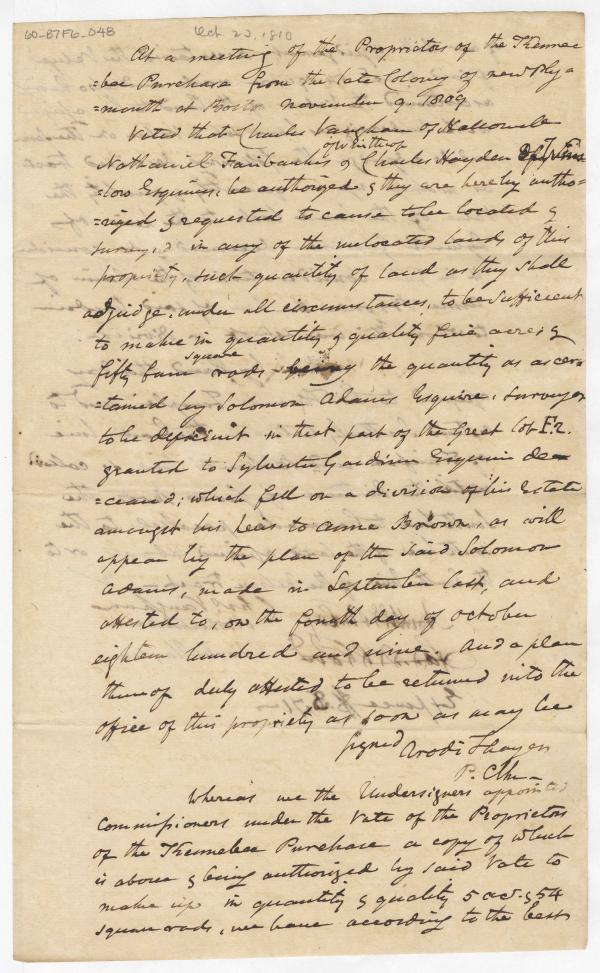 60-B7F6-04B Oct. 23, 1810
At a meeting of the Proprietors of the Kenne
=bec Purchase from the late Colony of new Ply=
=mouth at Boston november 9. 1809
Voted that Charles Vaughan of Hallowell
of Winthrop
Nathaniel Fairbanks & Charles Hayden of
=low Esquires, be authorized & they are hereby autho=
=rized & requested to cause to be located &
survey,d in any of the unlocated lands of this
propriety, such quantity of land as they shall
adjudge, under all circumstances, to be sufficient
to make in quantity & quality five acres &
square
fifty four rods being the quantity as ascer=
=tained by Solomon Adams Esquire, surveyor
to be deficient in that part of the Great Lot F. 2.
granted to Sylvester Gardiner Esquire de=
=ceased; which fell on a division of his Estate
amongst his heirs to Anne Brown, as will
appear by the plan of the said Solomon
Adams, made in September last, and
attested to, on the fourth day of October
eighteen hundred and nine. And a plan
thereof duly attested to be returned into the
office of this propriety as soon as may be
signed Arodi Thayer
P. Clk
Whereas we the Undersigners appointed
Commissioners under the Vote of the Proprietors
of the Kennebec Purchase a copy of which
is above & being authorized by said Vote to
make up in quantity & quality 5 acs. & 54
square rods, we have according to the best